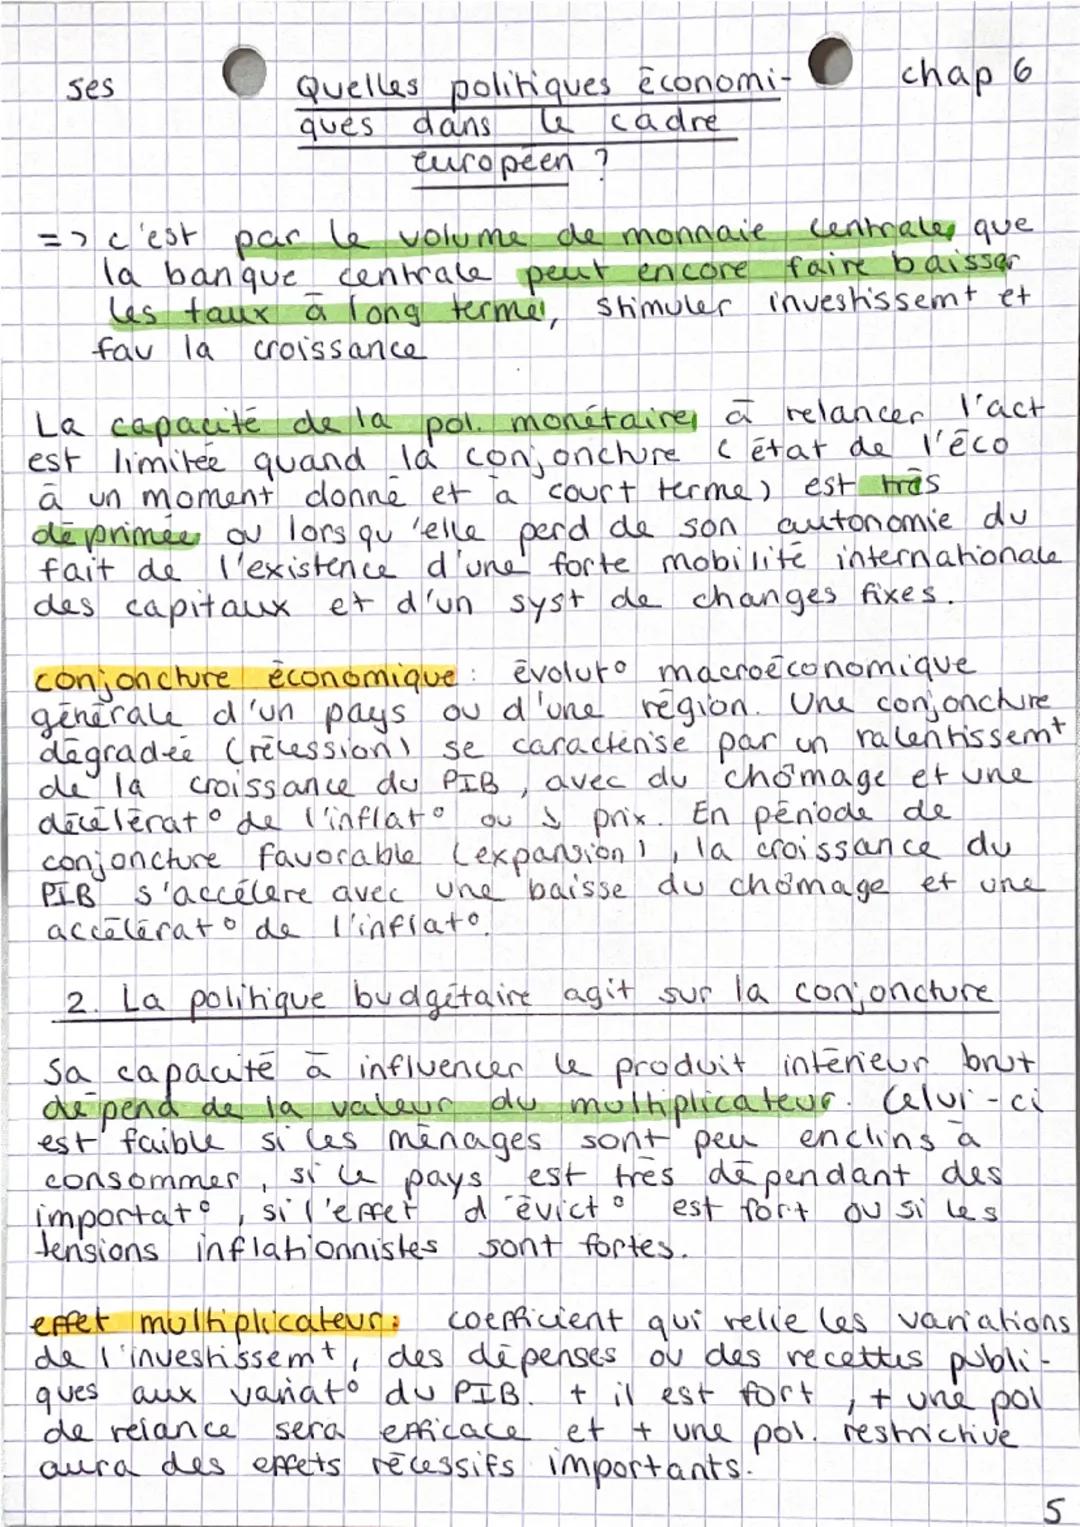 ses
chap 6
Quelles politiques économi-
ques dans le cadre
européen ?
=> c'est par le volume de monnaie centrale, que
la banque centrale peut encore faire baisser
les taux à long terme, stimuler investissemt et
fav la croissance
La capacité de la pol. monétaire, à relancer l'act
est limitée quand la conjoncture (état de l'éco
à un moment donné et à court terme) est très
déprimée ou lorsqu'elle perd de son autonomie du
fait de l'existence d'une forte mobilité internationale
des capitaux et d'un syst de changes fixes.
conjoncture économique : évolut° macroéconomique
générale d'un pays ou d'une région. Une conjoncture
dégradée (récession) se caractérise par un ralentissemt
de la croissance du PIB, avec du chômage et une
décélérat° de l'inflat° ou ↓ prix. En période de
conjoncture favorable (expansion), la croissance du
PIB s'accélère avec une baisse du chômage et une
accélérat° de l'inflat°.
2. La politique budgétaire agit sur la conjoncture
Sa capacité à influencer le produit intérieur brut
dépend de la valeur du multiplicateur. Celui-ci
est faible si les ménages sont peu enclins à
consommer, si le pays est très dépendant des
importat°, si l'effet d'évict° est fort ou si les
tensions inflationnistes sont fortes.
effet multiplicateur : coefficient qui relie les variations
de l'investissemt, des dépenses ou des recettes publi-
ques aux variat° du PIB. + il est fort, + une pol
de relance sera efficace et + une pol. restrictive
aura des effets récessifs importants.
5